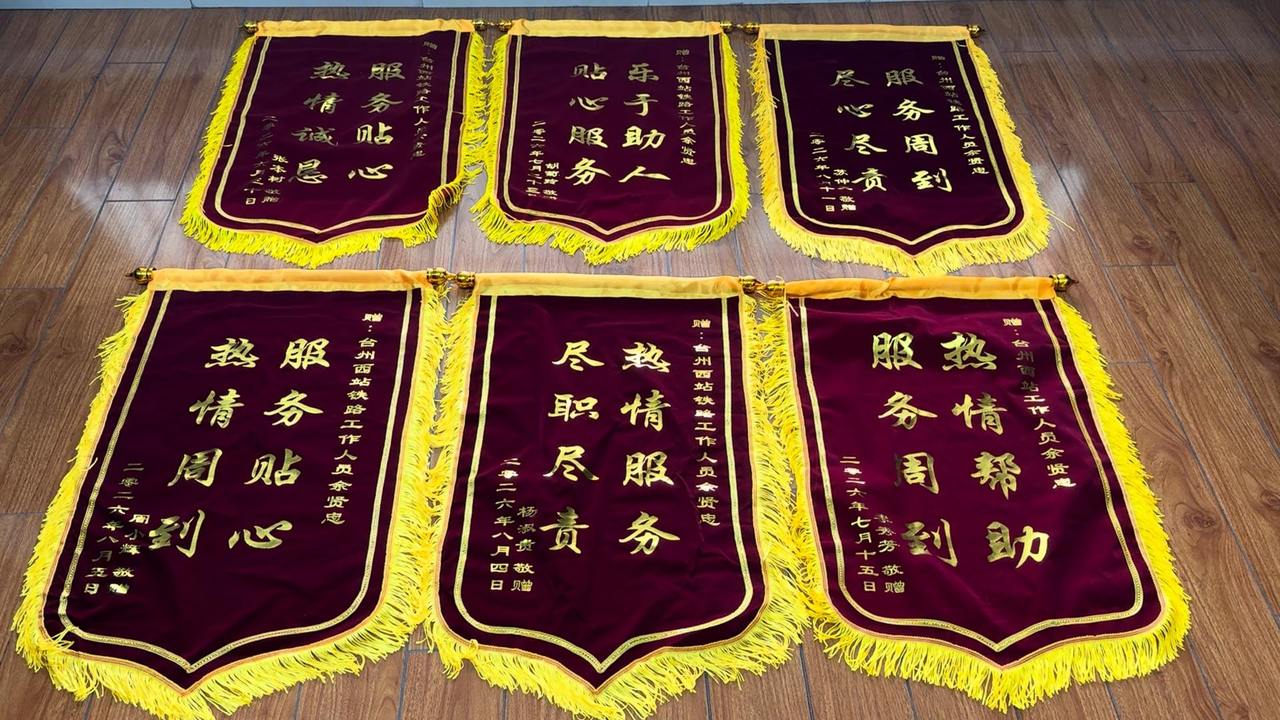 赠：台州西站铁路工作人员余贤忠
服务贴心
热情诚恳
张本树 敬赠
赠：台州西站铁路工作人员余贤忠
乐于助人
贴心服务
敬赠
二零二六年七月二十三日
赠：台州西站铁路工作人员余贤忠
服务周到
尽心尽责
敬赠
二零二六年八月十一日
赠：台州西站铁路工作人员余贤忠
服务贴心
热情周到
周小辉 敬赠
二零二六年八月五日
赠：台州西站铁路工作人员余贤忠
热情服务
尽职尽责
敬赠
二零二六年八月四日
赠：台州西站工作人员余贤忠
热情帮助
服务周到
敬赠
二零二六年七月十五日